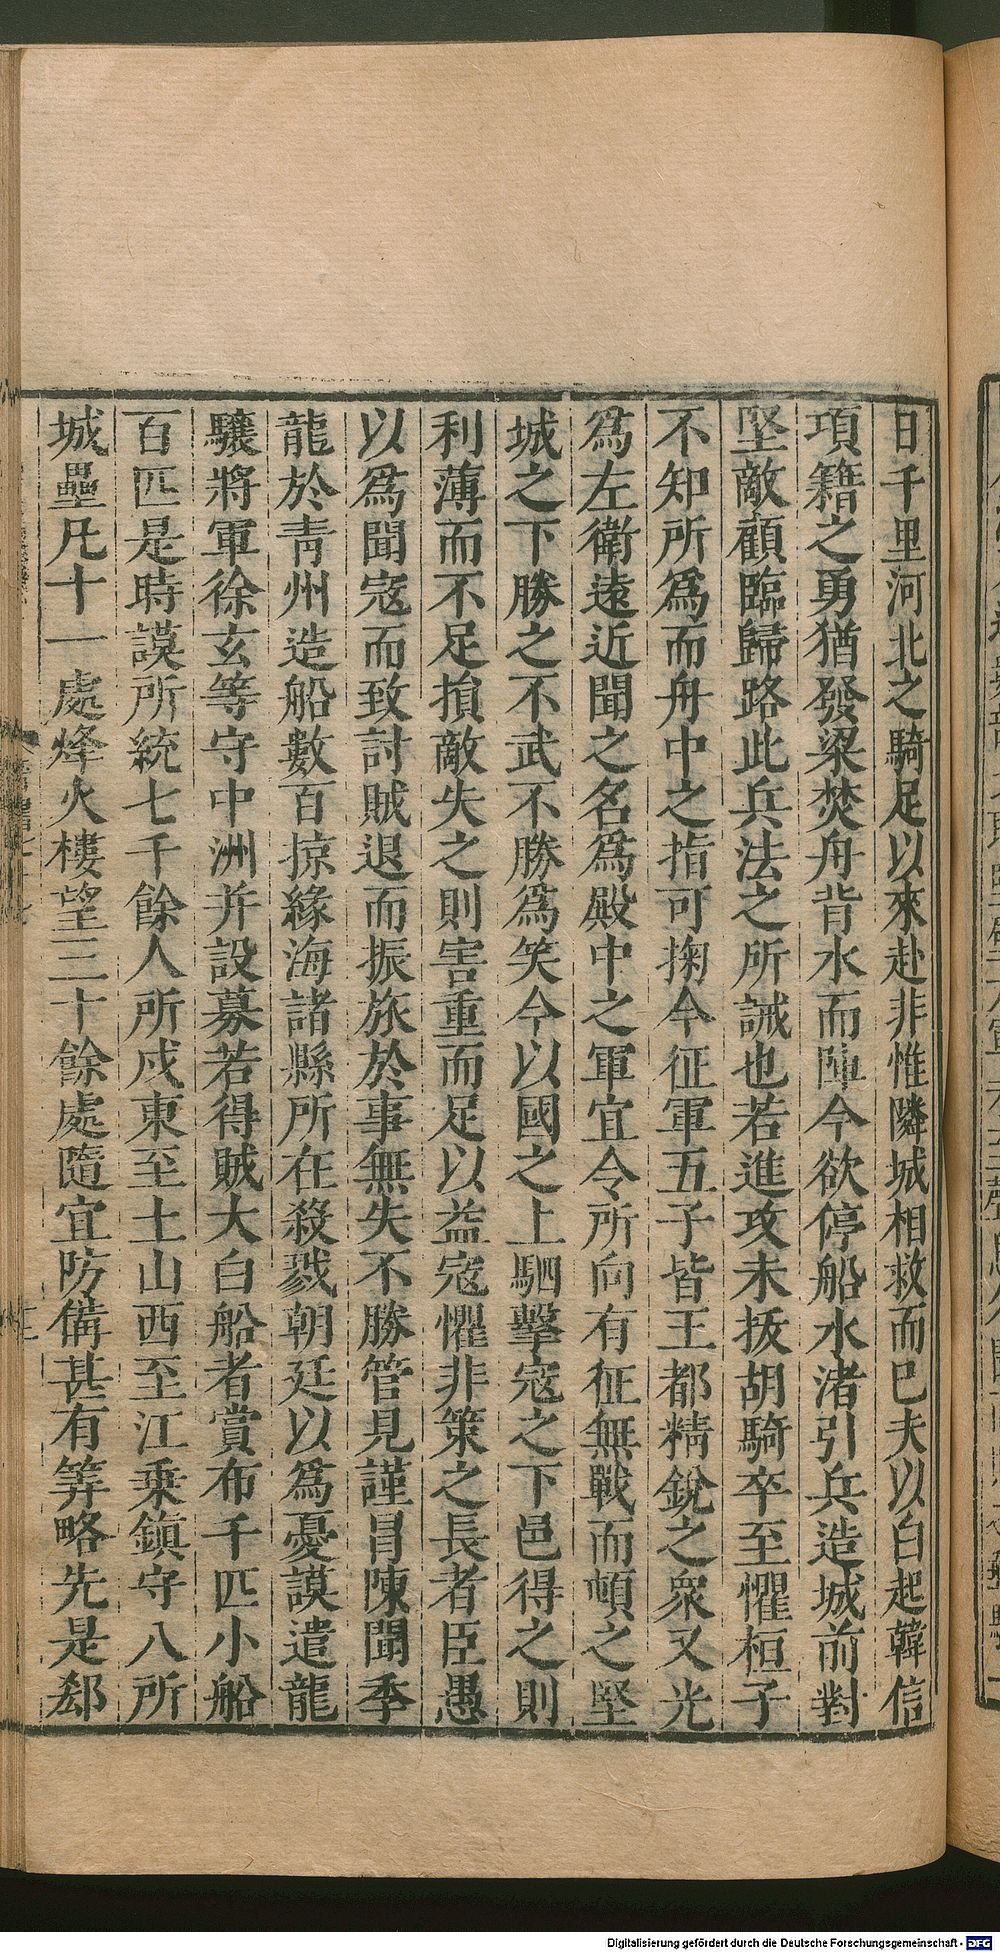 日千里河北之騎足以來赴非惟隣城相救而巳夫以白起韓信
項籍之勇猶發梁焚舟背水而陣今欲停船水渚引兵造城前對
堅敵顧臨歸路此兵法之所誡也若進攻未拔胡騎卒至懼桓子
不知所爲而舟中之指可掬今征軍五子皆王都精銳之衆又光
爲左衛遠近聞之名爲殿中之軍宜令所向有征無戰而頓之堅
城之下勝之不武不勝爲笑今以國之上駟擊寇之下邑得之則
利薄而不足損敵失之則害重而足以益寇懼非策之長者臣愚
以爲聞寇而致討賊退而振旅於事無失不勝管見謹冒陳聞季
龍於靑州造船數百掠緣海諸縣所在殺戮朝廷以爲憂謨遣龍
驤將軍徐玄等守中洲并設募若得賊大白船者賞布千匹小船
百匹是時謨所統七千餘人所戍東至土山西至江乗鎭守八所
城壘凡十一處烽火樓望三十餘處隨宜防備甚有筭略先是郄
Digitalisierung gefördert durch die Deutsche Forschungsgemeinschaft - DFG